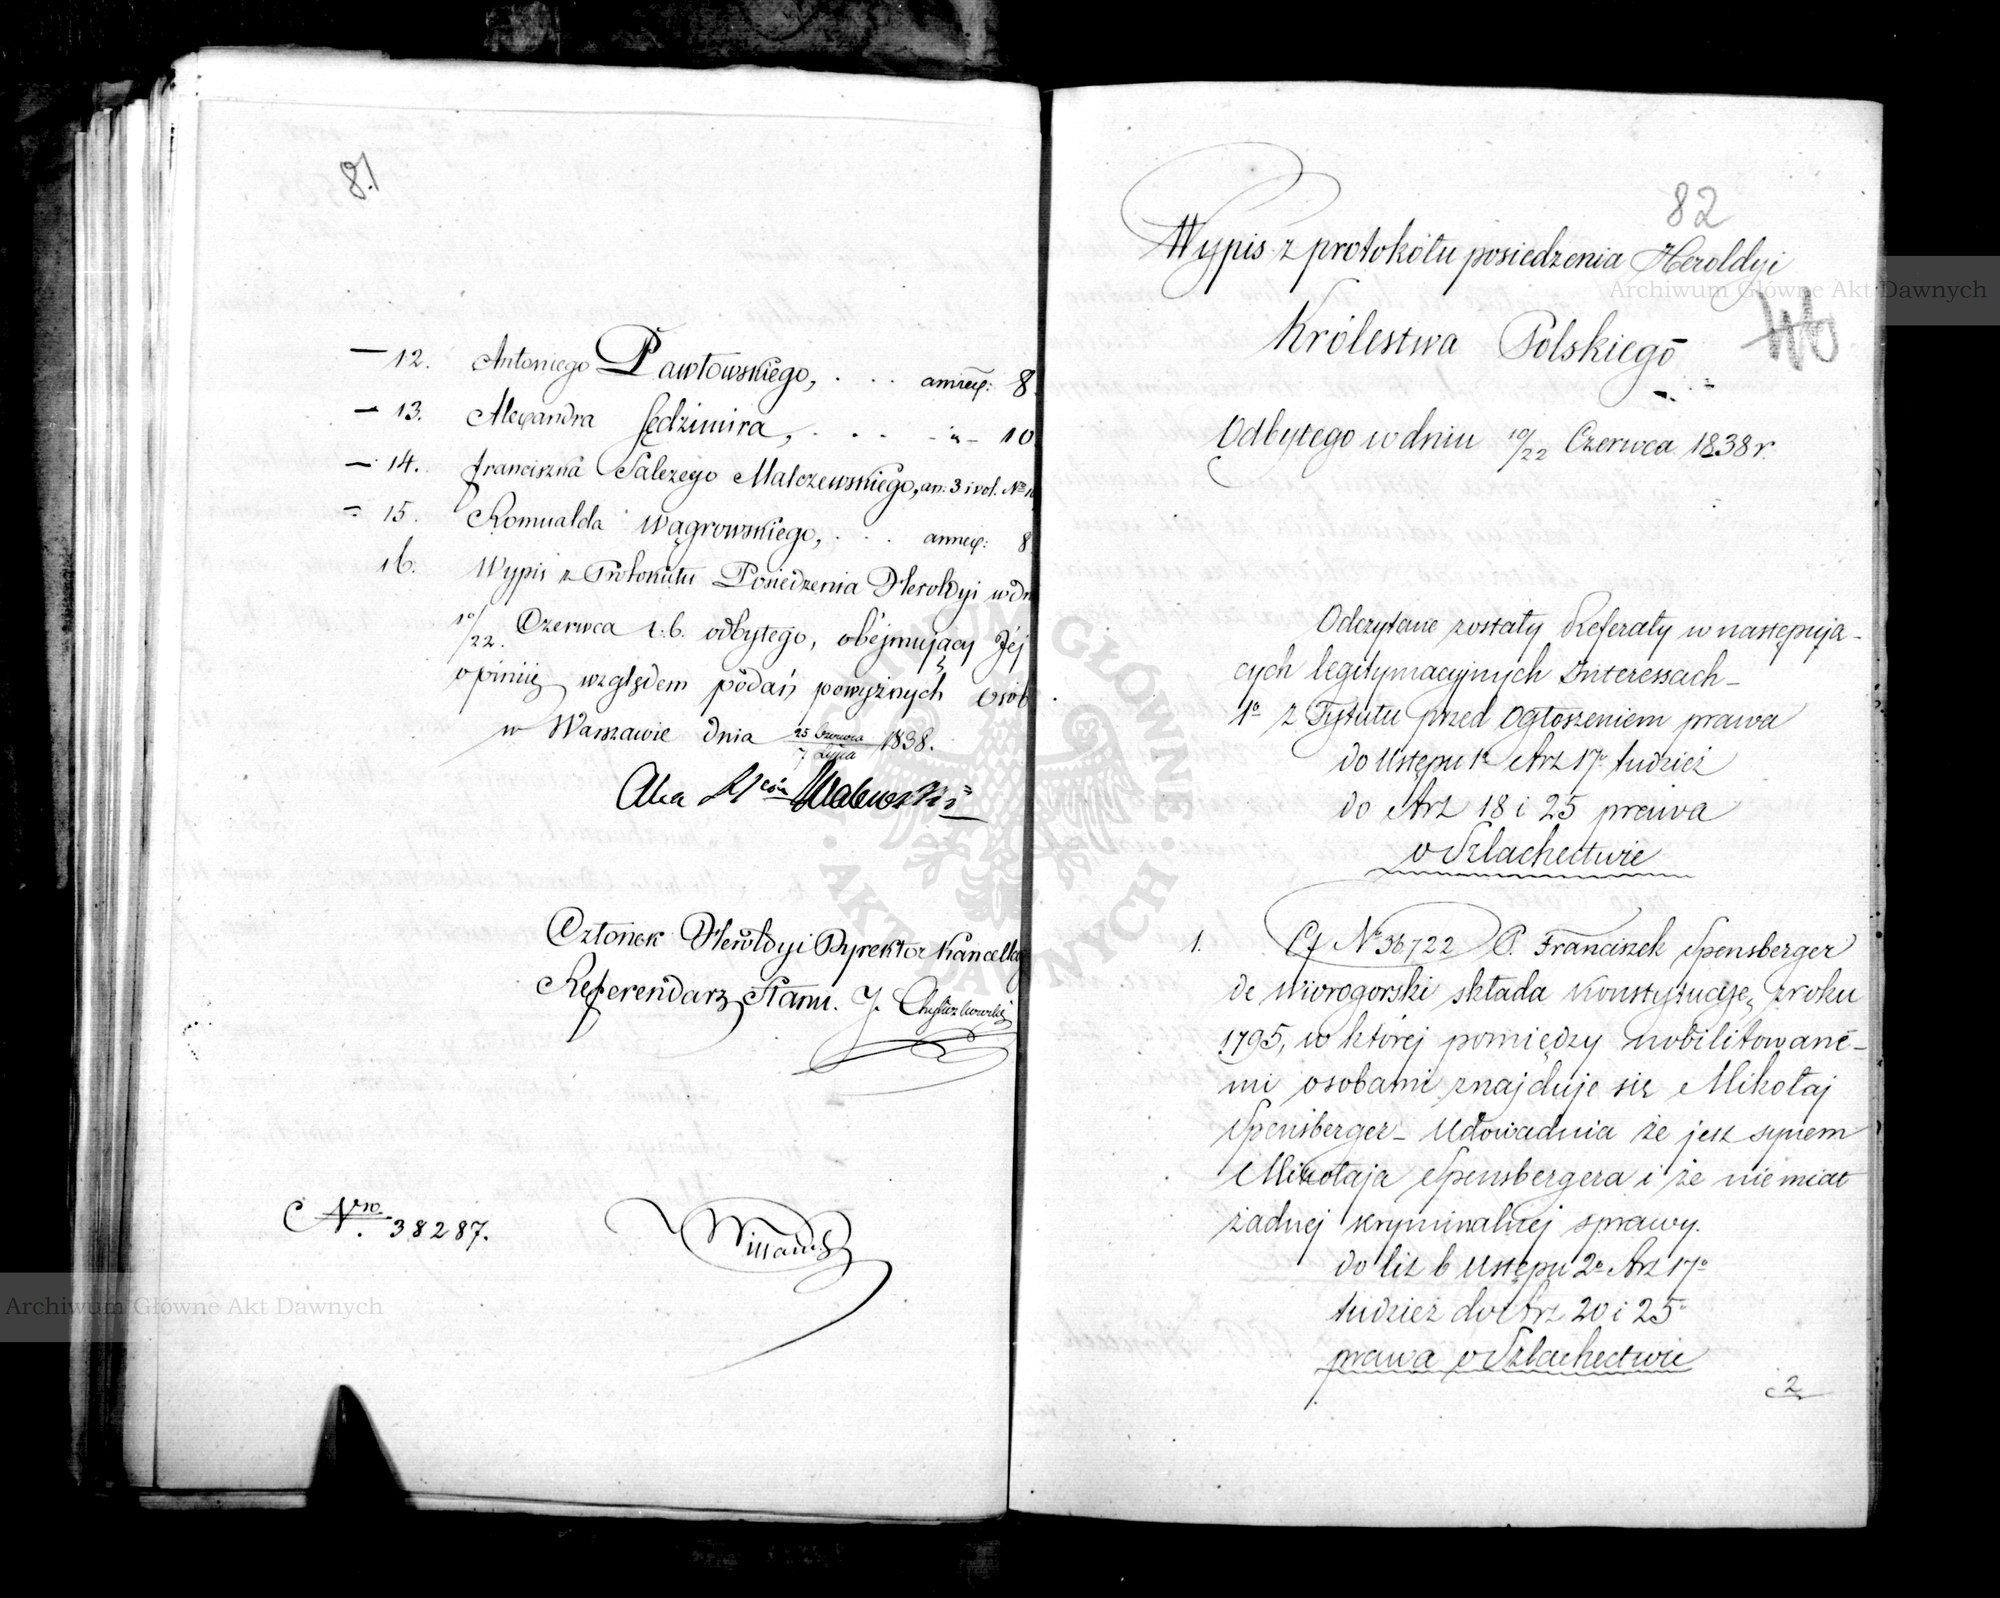 81
— 12. Antoniego Pawłowskiego, . . . annex: 8
— 13. Alexandra Sędzimira, . . . - „ - 10
— 14. Franciszka Salezego Malczewskiego, an: 3 i vol. No 1
— 15. Romualda Wągrowskiego, . . . annex: 8
16. Wypis z Protokułu Posiedzenia Heroldyi w dn
10/22. Czerwca r. b. odbytego, obejmujący Jéj
opinię względem podań powyższych Osób
w Warszawie dnia 25 Czerwca / 7 Lipca 1838.
Członek Heroldyi Dyrektor Kancellary
Referendarz Stanu. J.
Nro. 38287.
82
Wypis z protokółu posiedzenia Heroldyi
Królestwa Polskiego
Odbytego w dniu 10/22 Czerwca 1838 r.
Odczytane zostały Referaty w następują-
cych legitymacyjnych Interessach-
1o z Tytułu przed Ogłoszeniem prawa
do Ustępu 1o Art 17o tudzież
do Art 18 i 25 prawa
o Szlachectwie
1. Cf No 36722 P. Franciszek Spensberger
de Wivrogorski składa Konstytucyę z roku
1795, w której pomiędzy nobilitowane-
mi osobami znajduje się Mikołaj
Spensberger- Udowadnia że jest synem
Mikołaja Spensbergera i że nie miał
żadnej kryminalnej sprawy.
do lit b Ustępu 2o Art 17o
tudzież do Art 20 i 25o
prawa o Szlachectwie
2
Archiwum Główne Akt Dawnych
Archiwum Główne Akt Dawnych
ARCHIWUM GŁÓWNE · AKT DAWNYCH ·